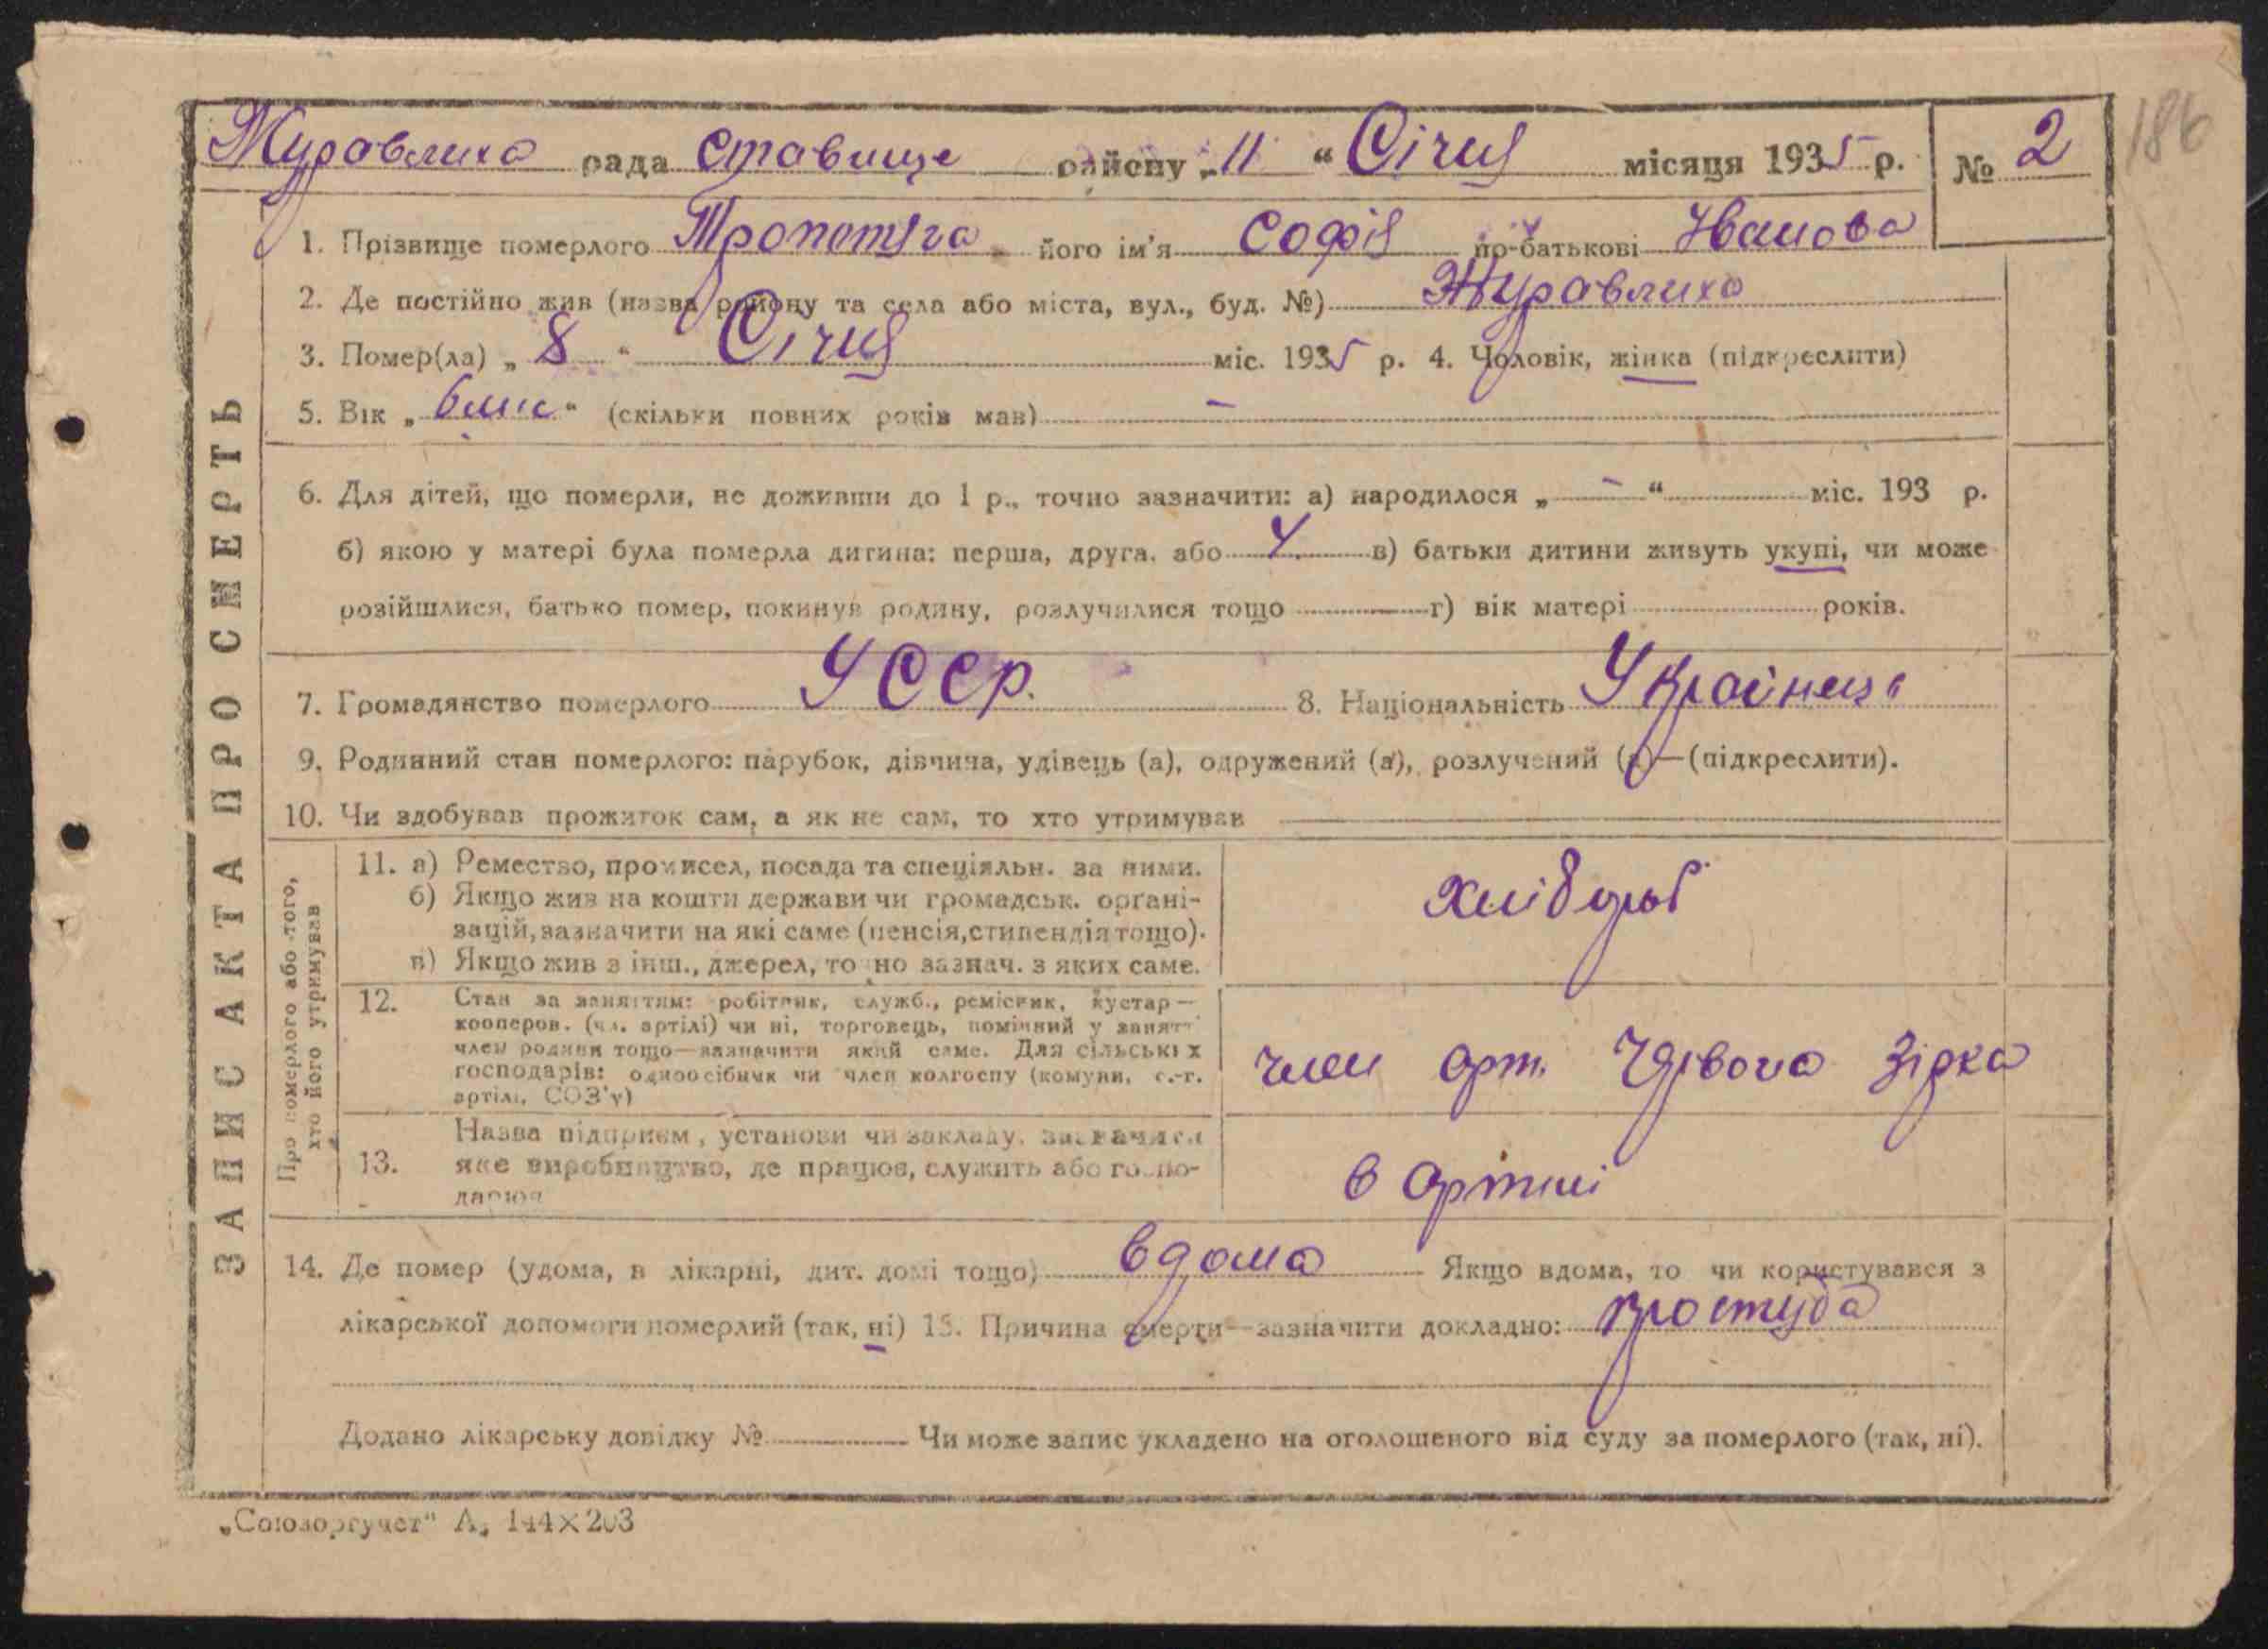 Журавлиха рада Ставище району „ 11 “ Січня місяця 1935 р. № 2
186
ЗАПИС АКТА ПРО СМЕРТЬ
1. Прізвище померлого Тропотяга його ім'я Софія по-батькові Іванова
2. Де постійно жив (назва району та села або міста, вул., буд. №) Журавлиха
3. Помер(ла) „ 8 “ Січня міс. 1935 р. 4. Чоловік, жінка (підкреслити)
5. Вік „ 6 міс “ (скільки повних років мав) –
6. Для дітей, що померли, не доживши до 1 р., точно зазначити: а) народилося „ – “ міс. 193 р.
б) якою у матері була померла дитина: перша, друга, або 4 в) батьки дитини живуть укупі, чи може
розійшлися, батько помер, покинув родину, розлучилися тощо г) вік матері років.
7. Громадянство померлого УССР. 8. Національність Українець
9. Родинний стан померлого: парубок, дівчина, удівець (а), одружений (а), розлучений (а)—(підкреслити).
10. Чи здобував прожиток сам, а як не сам, то хто утримував
Про померлого або того,
хто його утримував
11. а) Ремество, промисел, посада та спеціяльн. за ними.
б) Якщо жив на кошти держави чи громадськ. органі-
зацій, зазначити на які саме (пенсія, стипендія тощо).
в) Якщо жив з інш., джерел, точно зазнач. з яких саме.
хлібороб
12. Стан за заняттям: робітник, служб., ремісник, кустар—
кооперов. (чл. артілі) чи ні, торговець, помічний у занятті
член родини тощо—зазначити який саме. Для сільських
господарів: одноосібник чи член колгоспу (комуни, с.-г.
артілі, СОЗ'у)
член арт. Зірка
13. Назва підприєм., установи чи закладу, зазначити
яке виробництво, де працює, служить або госпо-
дарює
в артилі
14. Де помер (удома, в лікарні, дит. домі тощо) вдома Якщо вдома, то чи користувався з
лікарської допомоги померлий (так, ні) 15. Причина смерти—зазначити докладно: простуда
Додано лікарську довідку № Чи може запис укладено на оголошеного від суду за померлого (так, ні).
„Союзоргучет“ А₅ 144×203